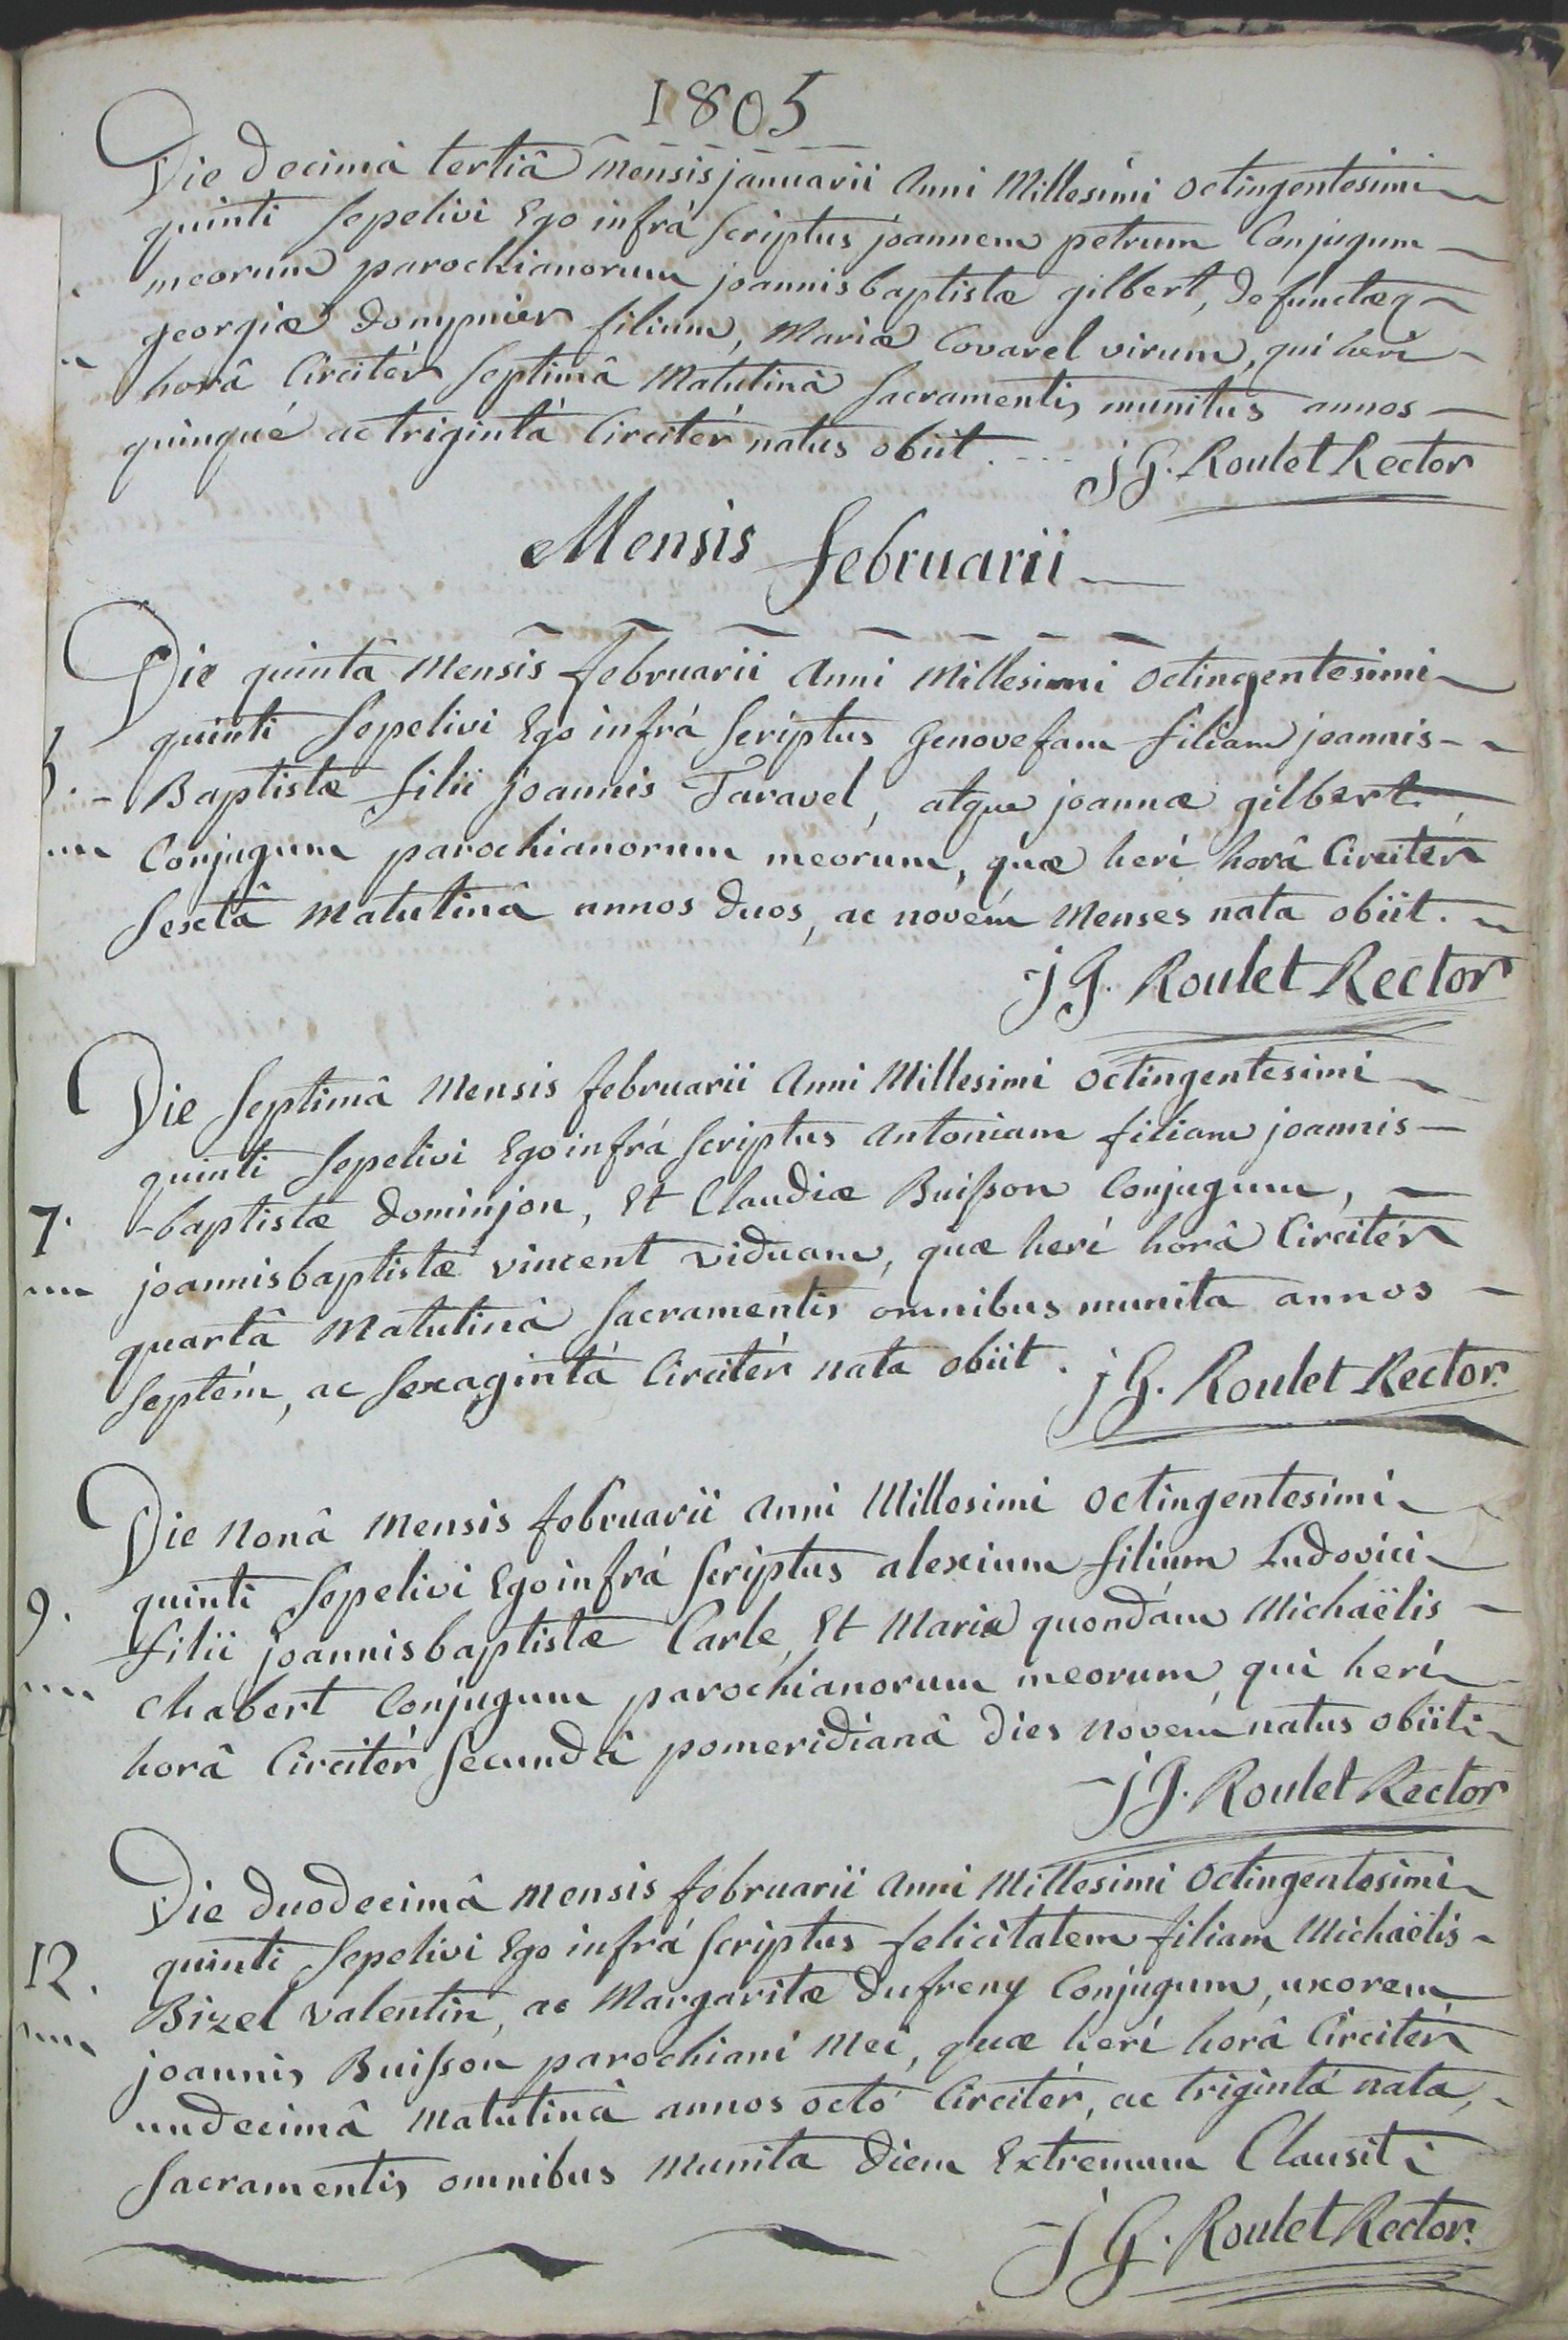 1805
Die decimâ tertiâ mensis januarii anni Millesimi octingentesimi
quinti sepelivi Ego infrá scriptus joannem petrum Conjugum
meorum parochianorum joannis baptistæ gilbert, defunctæq
georgiæ dompnier filium, Mariæ Covarel virum, qui heri
horâ Circitér septimâ Matutinâ sacramentis munitus annos
quinqué ac trigintá Circitér natus obiit. --- j G. Roulet Rector
Mensis februarii
Die quintâ Mensis februarii anni Millesimi octingentesimi
quinti sepelivi Ego infrá scriptus Genovefam filiam joannis-
5. - Baptistæ filii joannis Taravel, atque joannæ gilbert
Conjugum parochianorum meorum, quæ heri horâ Circitér
sextâ Matutinâ annos duos, ac novém Menses nata obiit.
j G. Roulet Rector
Die septimâ Mensis februarii anni Millesimi octingentesimi
quinti sepelivi Ego infrá scriptus antoniam filiam joannis-
7. -baptistæ dominjon, Et Claudiæ Buisson Conjugum,
joannis baptistæ vincent viduam, quæ herí horâ Circitér
quartâ Matutinâ sacramentis omnibus munita annos
septém, ac sexagintá Circitér nata obiit. j G. Roulet Rector.
Die nonâ Mensis februarii anni Millesimi octingentesimi
quinti sepelivi Ego infrá scriptus alexium filium Ludovici
9. filii joannis baptistæ Carle, Et Mariæ quondám Michaëlis
chabert Conjugum parochianorum meorum, qui herí
horâ Circitér secundâ pomeridianâ dies novém natus obiit.
j G. Roulet Rector
Die duodecimâ mensis februarii anni Millesimi octingentesimi
quinti sepelivi Ego infrá scriptus felicitatem filiam Michaëlis
12. Bizel valentin, ac Margaritæ dufreny Conjugum, uxorem
joannis Buisson parochiani Mei, quæ herí horâ Circitér
undecimâ Matutinâ annos octó Circitér, ac trigintá nata,
sacramentis omnibus Munita diem Extremum Clausit.
j G. Roulet Rector.